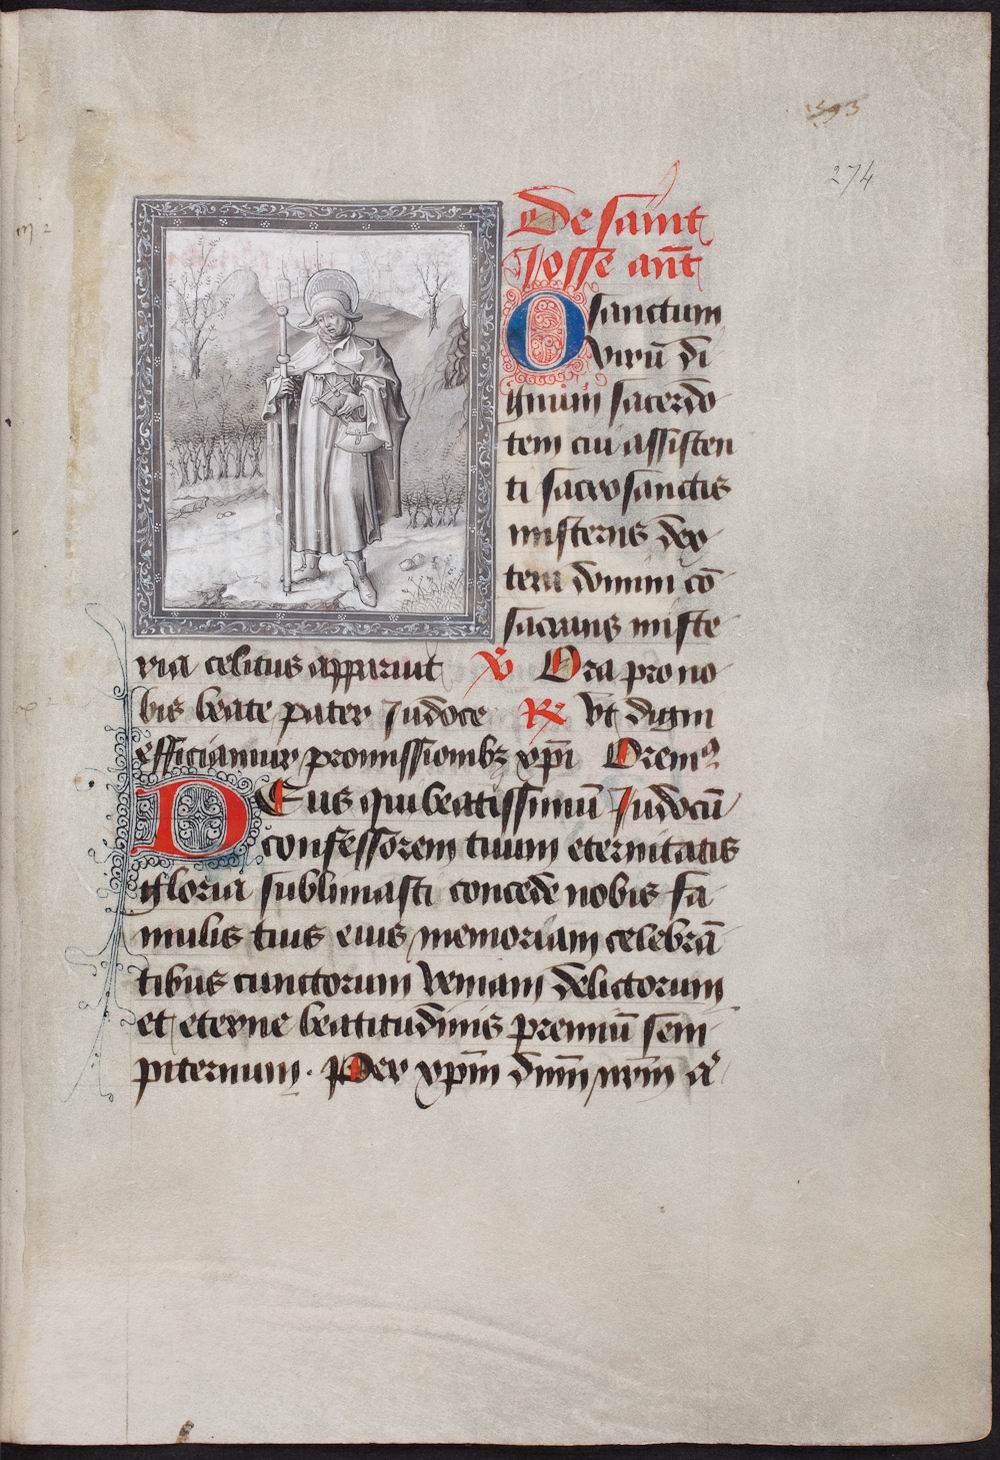 274
De saint
Josse ant̄
O sanctum
virū di
gnum sacerdo
tem cui assisten
ti sacrosanctis
misteriis dex
tera domini cō
sacrans miste
ria celitus apparuit ℣ Ora pro no
bis beate pater Judoce ℟ Vt digni
efficiamur promissionibꝫ xp̄i Oremꝰ
DEus qui beatissimū Judocū
confessorem tuum eternitatis
gloria sublimasti concede nobis fa
mulis tuis eius memoriam celebrā
tibus cunctorum veniam delictorum
et eterne beatitudinis premiū sem
piternum. Per xp̄m dn̄m nr̄m a